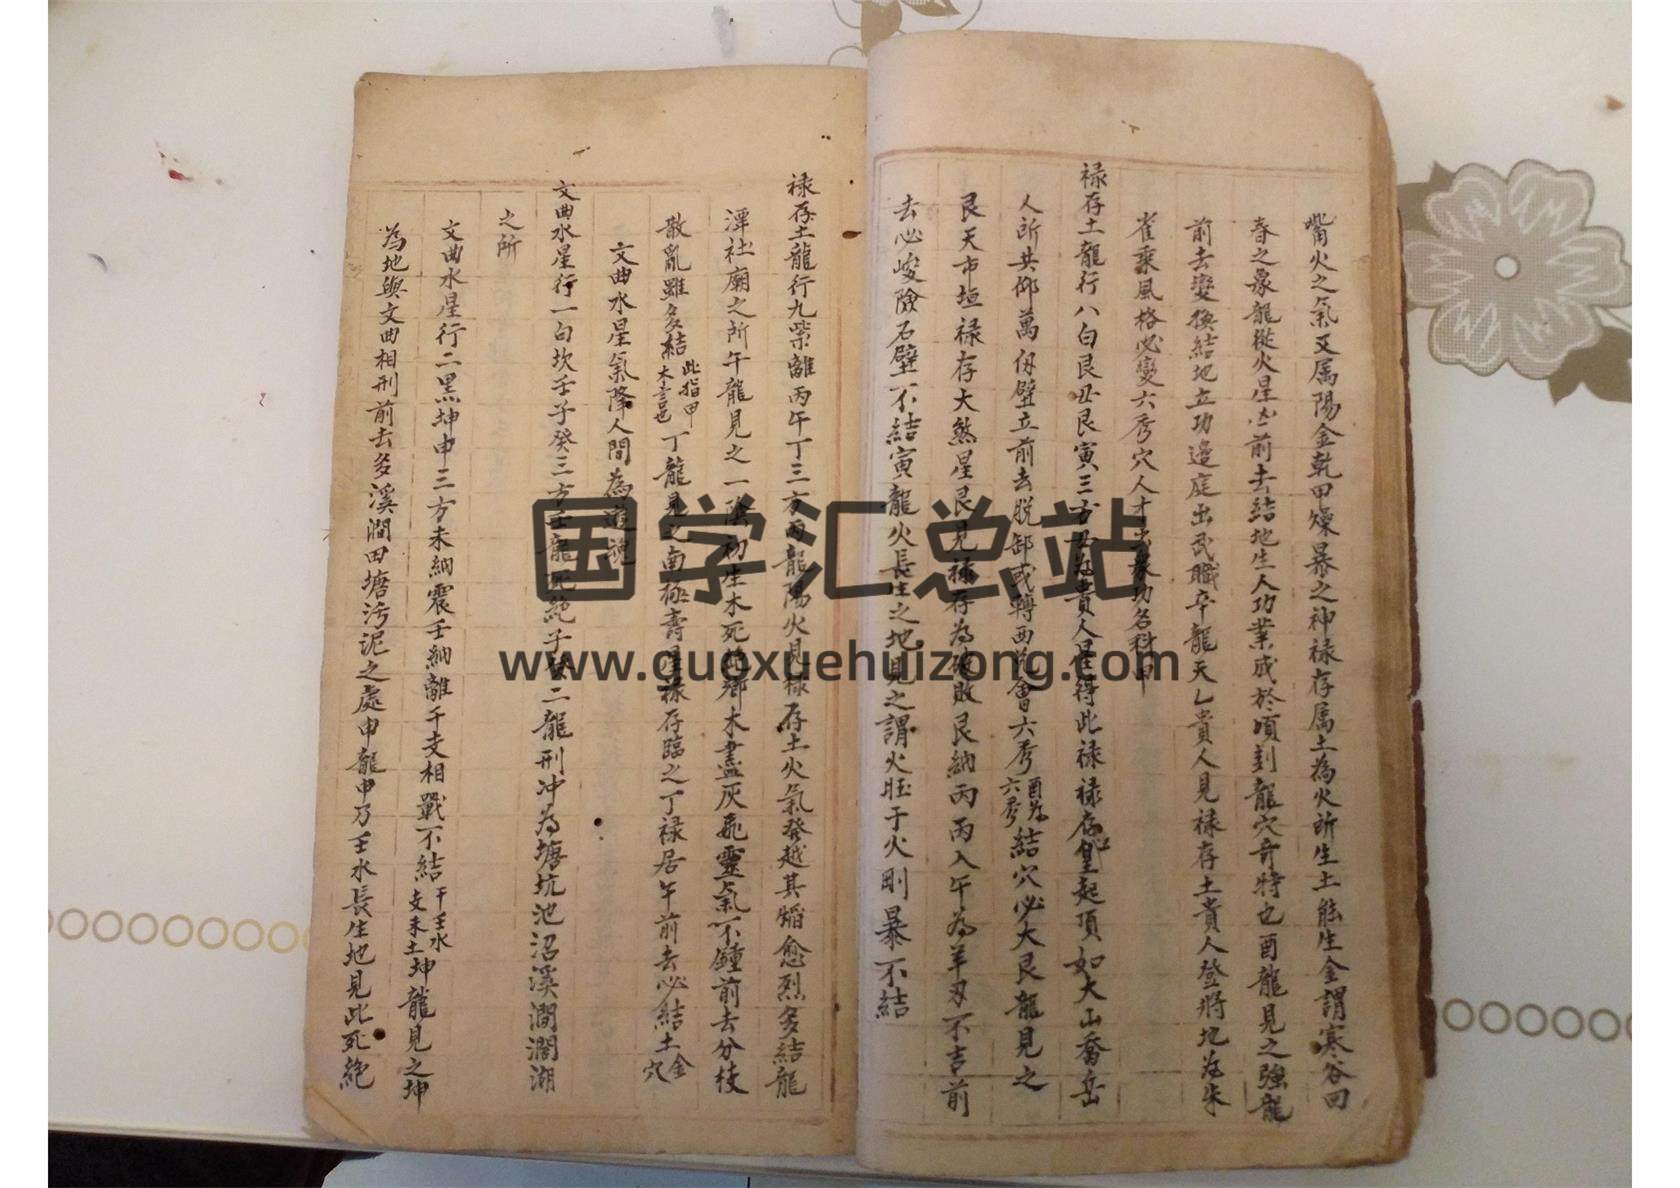 嘴火之氣又属陽金乾甲燥暴之神禄存属土為火所生土能生金謂寒谷回
春之象龍從火星出前去結地生人功業成於頃刻龍穴奇特也酉龍見之強龍
前去變換結地立功邉庭出武職辛龍天乙貴人見禄存土貴人登將地為朱
雀乘風格必變六秀穴人才出衆功名科甲
禄存土龍行八白艮丑艮寅三方丑為貴人星得此禄禄存星起頂如大山喬岳
人所共仰萬仞壁立前去脱卸或轉酉龍會六秀酉為六秀結穴必大艮龍見之
艮天市垣禄存大煞星艮見禄存為破敗艮納丙丙入午為羊刃不吉前
去必峻險石壁不結寅龍火長生之地見之謂火旺于火剛暴不結
禄存土龍行九紫離丙午丁三方丙龍陽火見禄存土火氣發越其焰愈烈多結龍
潭社廟之所午龍見之一陰初生木死絶鄉木盡灰飛靈氣不鐘前去分枝
散亂雖多結此指甲木言也丁龍見之南極壽星禄存臨之丁禄居午前去必結土金穴
文曲水星氣降人間為遊魂
文曲水星行一白坎壬子癸三方壬龍死絶子癸二龍刑冲為塘坑池沼溪澗澗湖
之所
文曲水星行二黒坤申三方未納震壬納離干支相戰不結干壬水支未土坤龍見之坤
為地與文曲相刑前去多溪澗田塘污泥之處申龍申乃壬水長生地見此死絶
国学汇总站
www.guoxuehuizong.com